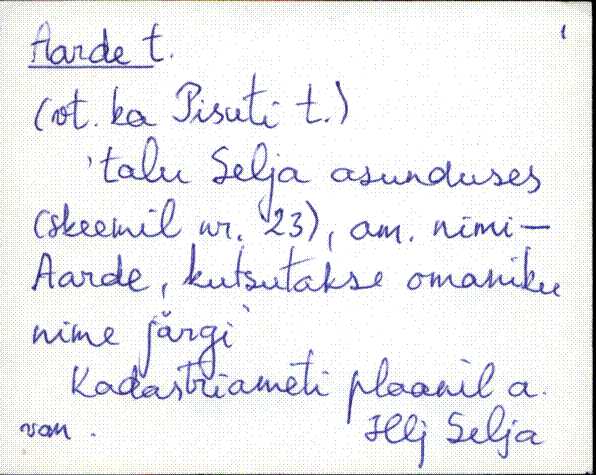 Aarde t.
(vt. ka Pisuti t.)
'talu Selja asunduses
(skeemil nr. 23), am. nimi –
Aarde, kutsutakse omaniku
nime järgi'
Kadastriameti plaanil a.
van. HljJ Selja